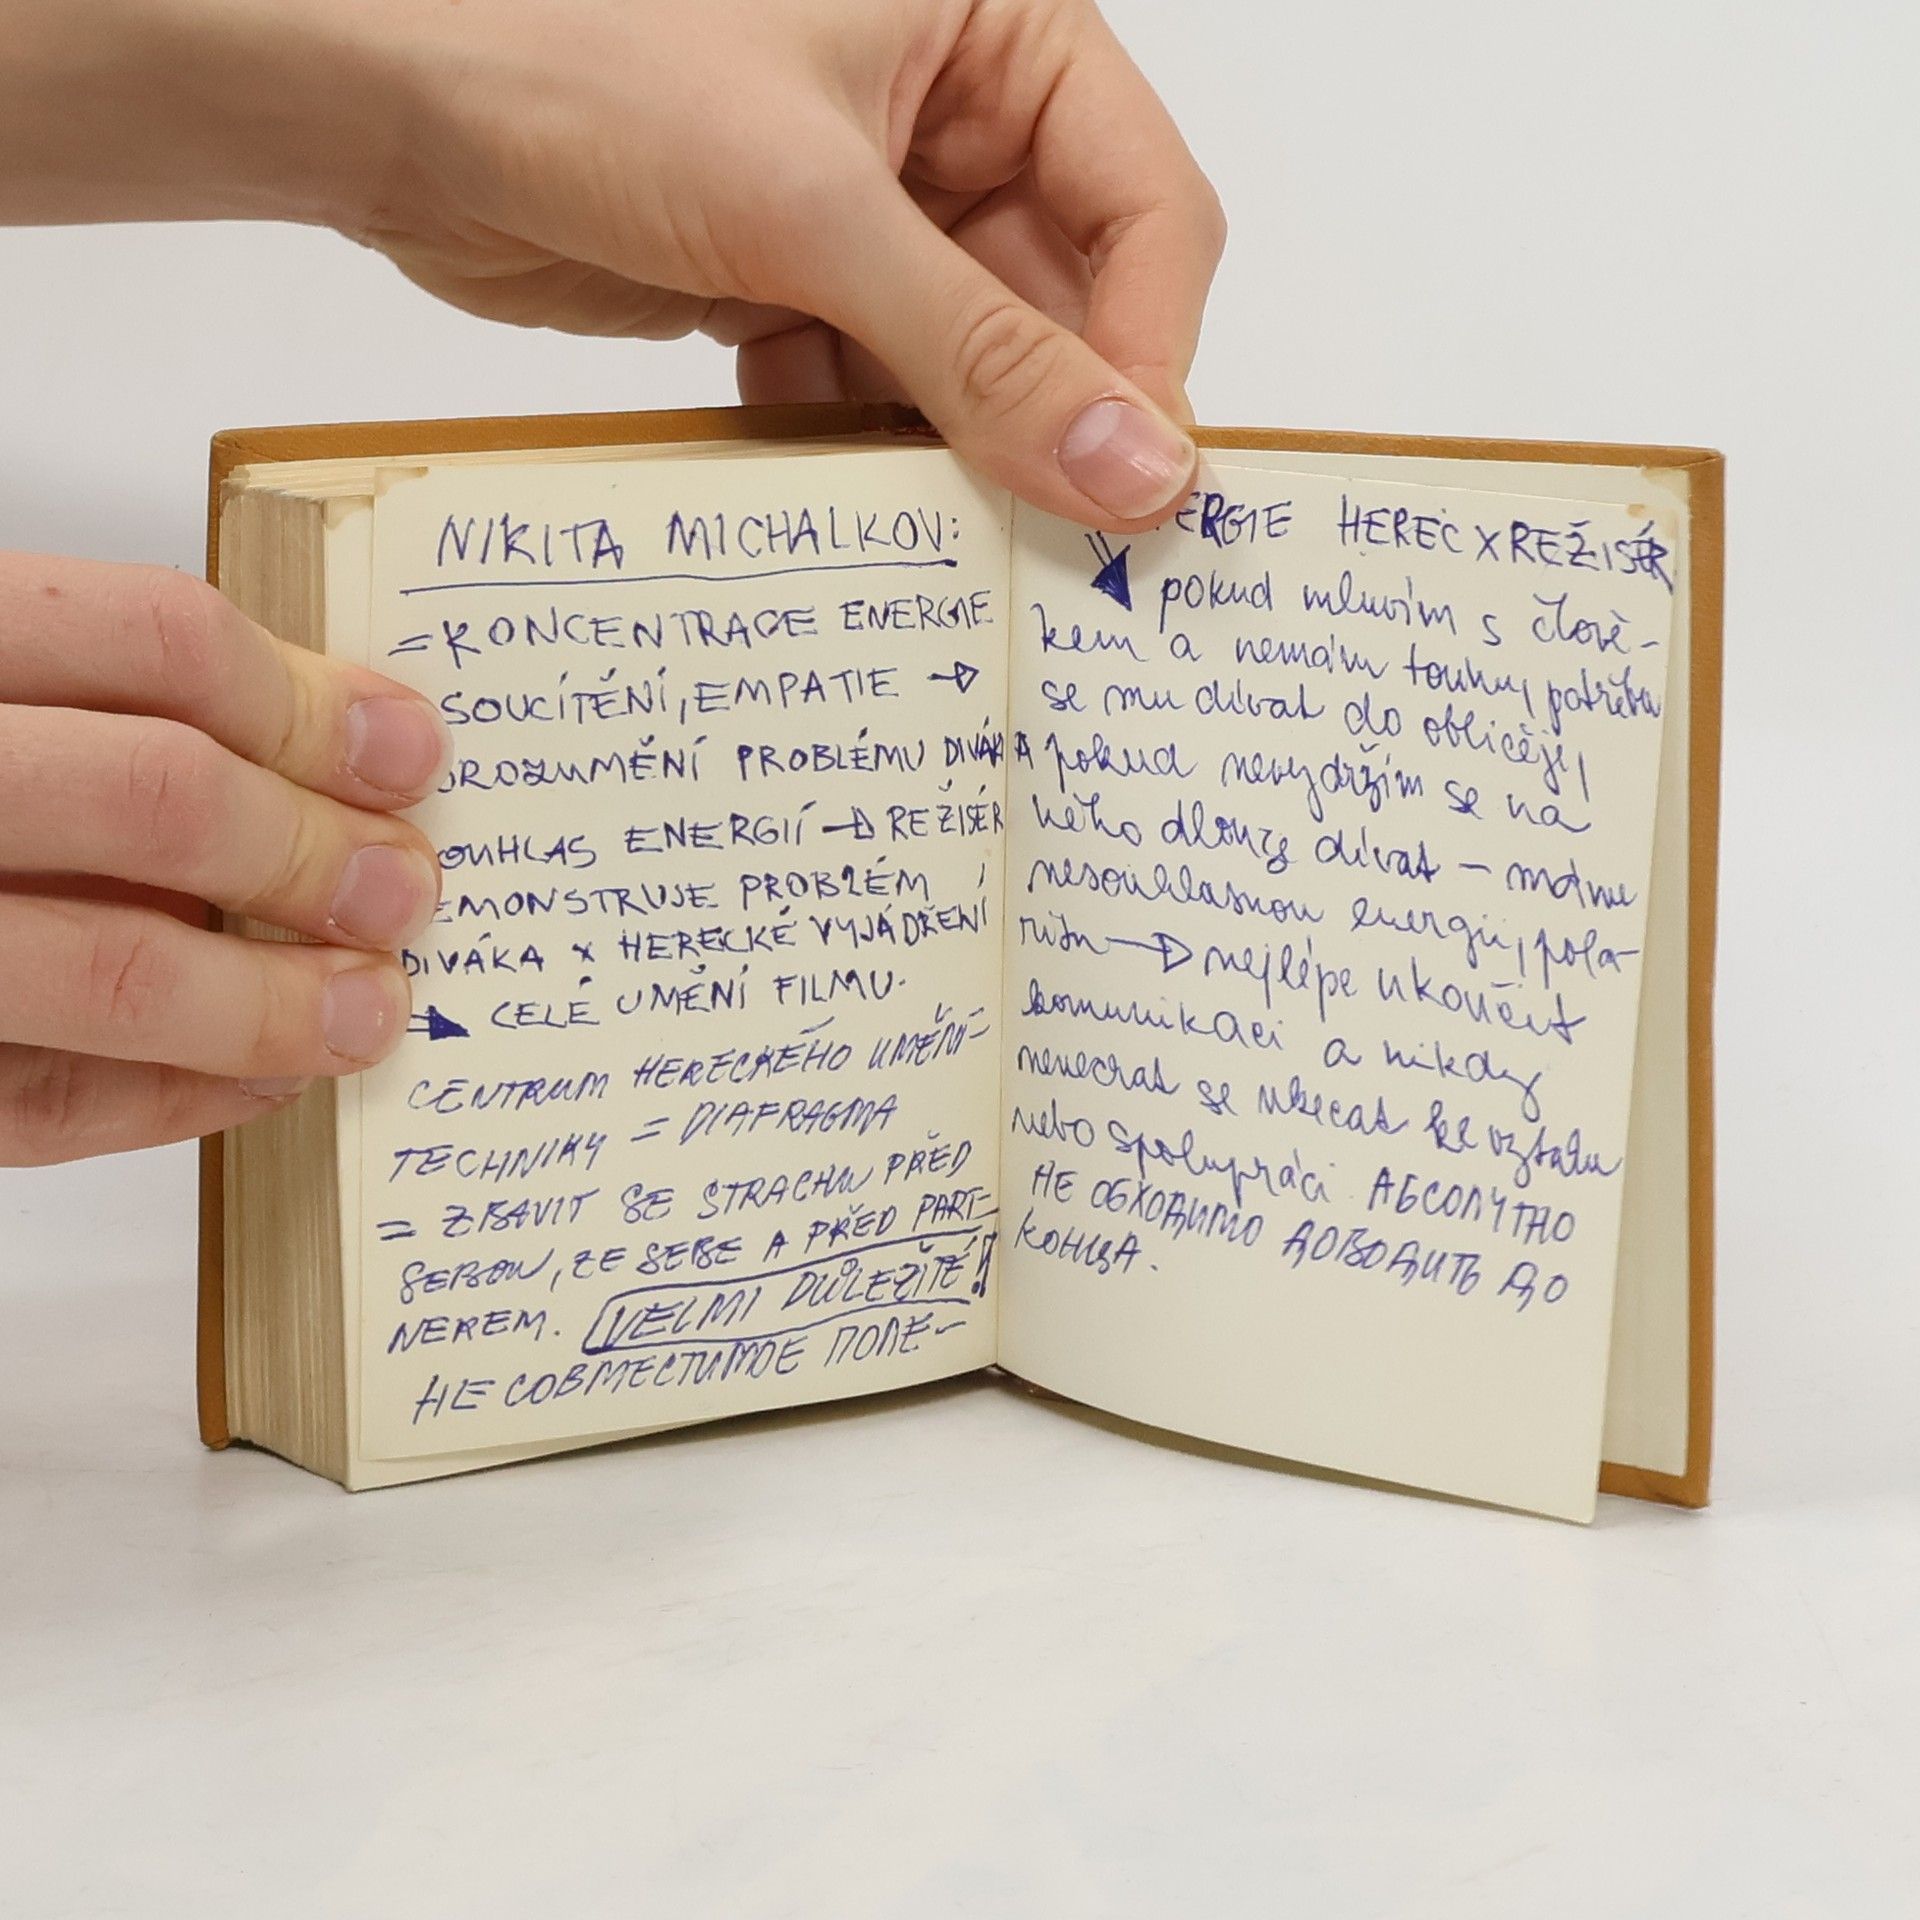 NIKITA MICHALKOV:
= KONCENTRACE ENERGIE
SOUCÍTĚNÍ, EMPATIE →
POROZUMĚNÍ PROBLÉMU DIVÁKA
SOUHLAS ENERGIÍ → REŽISÉR
DEMONSTRUJE PROBLÉM
DIVÁKA x HERECKÉ VYJÁDŘENÍ
→ CELÉ UMĚNÍ FILMU.
CENTRUM HERECKÉHO UMĚNÍ =
TECHNIKY = DIAFRAGMA
= ZBAVIT SE STRACHU PŘED
SEBOU, ZE SEBE A PŘED PART-
NEREM. VELMI DŮLEŽITÉ!!
НЕСОВМЕСТИМОЕ ПОЛЕ -
ERGIE HEREC X REŽISÉR
pokud mluvím s člově-
kem a nemám touhu, potřebu
se mu dívat do obličeje,
pokud nevydržím se na
něho dlouze dívat – máme
nesouhlasnou energii, pola-
ritu → nejlépe ukončit
komunikaci a nikdy
nenechat se ukecat ke vztahu
nebo spolupráci. АБСОЛУТНО
НЕ ОБХОДИМО ДОВОДИТЬ ДО
КОНЦА.